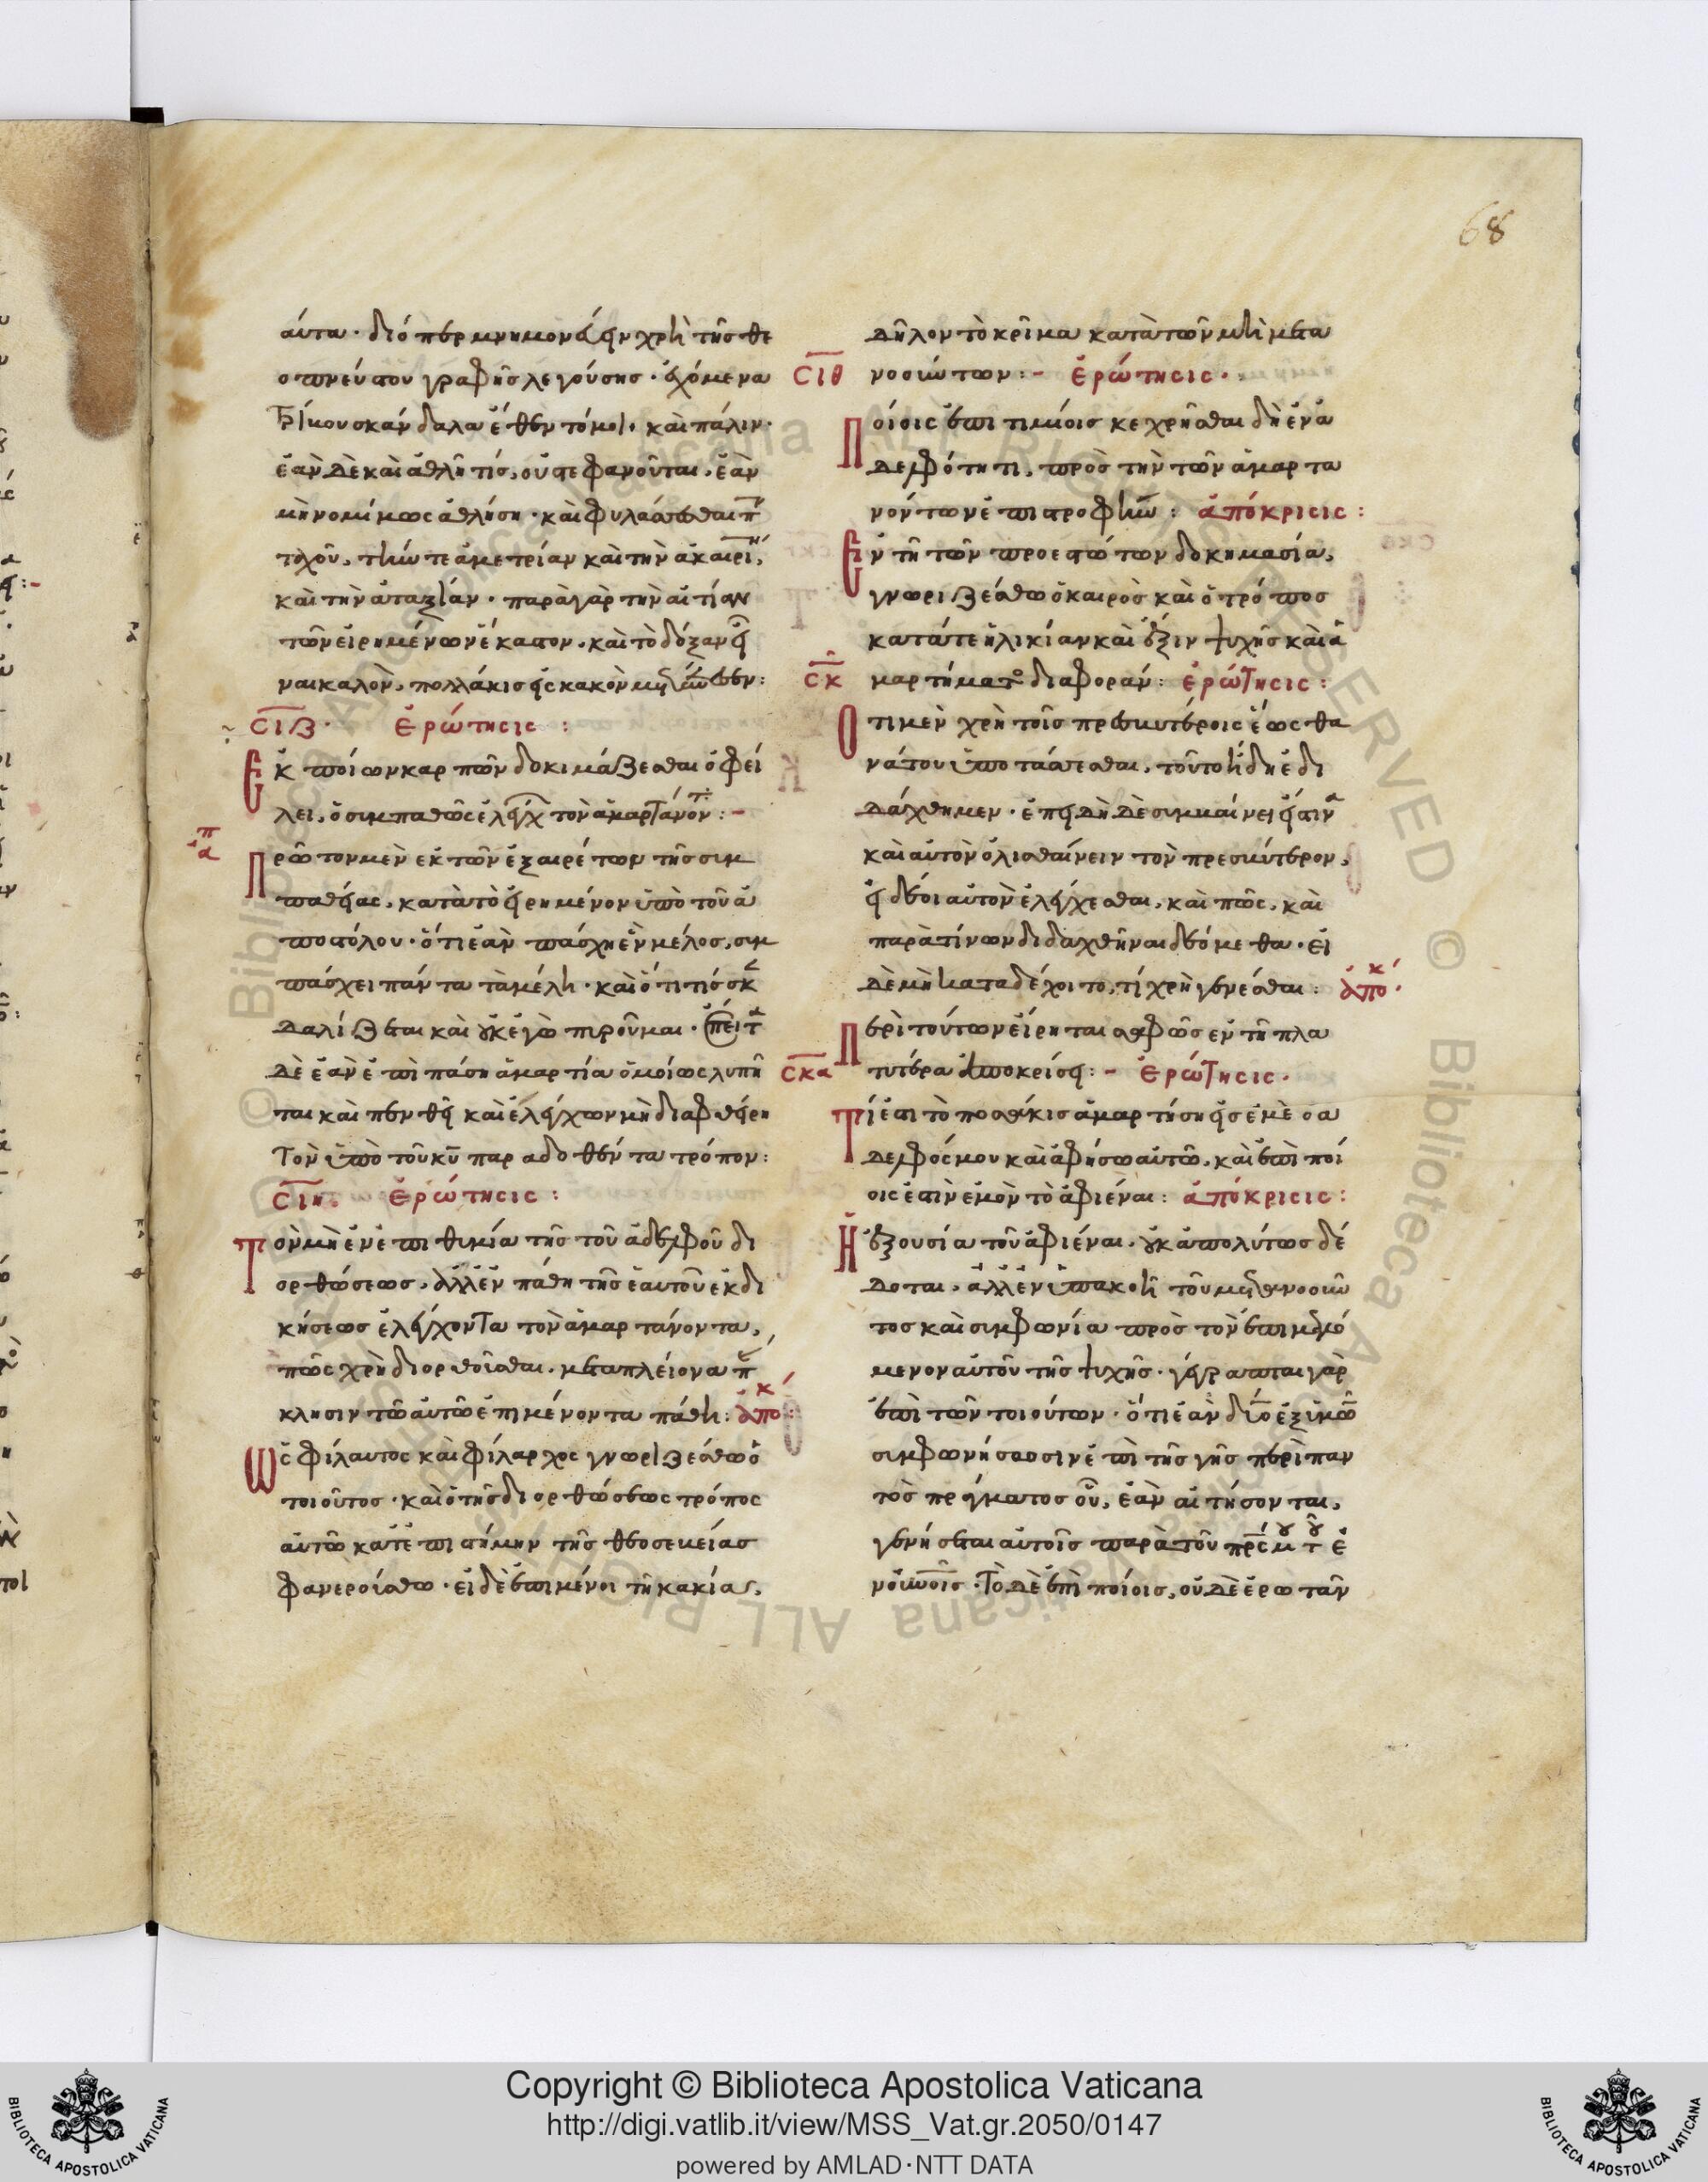 68
αύτα· διόπερ μνημονεύειν χρὴ τῆς θε
οπνεύστου γραφῆς λεγούσης· ἐχόμενα
τρίβου σκάνδαλα ἔθεντό μοι· καὶ πάλιν·
ἐὰν δὲ καὶ ἀθλῆ τίς, οὐ στεφανοῦται, ἐὰν
μὴ νομίμως ἀθλήση· καὶ φυλάσσεσθαι π
τχοῦ, τήν τε ἀμετρίαν καὶ τὴν ἀκαιρί,
καὶ τὴν ἀταξίαν· παρὰ γὰρ τὴν αἰτίαν
τῶν εἰρημένων ἕκαστον, καὶ τὸ δόξαν εἶ
ναι καλὸν, πολλάκις εἰς κακὸν
СΙΖ· ἐρώτησις:
Ἐκ ποίων καρπῶν δοκιμάζεσθαι ὀφεί
λει, ὁ συμπαθῶς ἐλέγχ τὸν ἁμαρτάνον:-
Πρῶτον μὲν ἐκ τῶν ἐξαιρέτων τῆς συμ
παθείας, κατὰ τὸ εἰρημένον ὑπὸ τοῦ ἀ
ποστόλου· ὅτι ἐὰν πάσχη ἓν μέλος, συμ
πάσχει πάντα τὰ μέλη· καὶ ὅτι τίς σκ
δαλίζεται καὶ οὐκ ἐγὼ πυροῦμαι· ἔπειτ
δὲ ἐὰν ἐπὶ πάση ἁμαρτία ὁμοίως λυπῆ
ται καὶ πενθεῖ καὶ ἐλέγχων μὴ διαφθείρη
τὸν ὑπὸ τοῦ κυ παραδοθέντα τρόπον:
СΙΗ. ἐρώτησις:
Τὸν μὴ ἐν ἐπιθυμία τῆς τοῦ ἀδελφοῦ δι
ορθώσεως, ἀλλ' ἐν πάθη τῆς ἑαυτοῦ ἐκδι
κήσεως ἐλέγχοντα τὸν ἁμαρτάνοντα,
πῶς χρὴ διορθοῦσθαι. μετα πλείονα π
κλησιν τῶ αὐτῶ ἐπιμένοντα πάθη: ἀποκ:
Ὡς φίλαυτος καὶ φίλαρχος γνωριζέσθω ὁ
τοιοῦτος· καὶ ὁ τῆς διορθώσεως τρόπος
αὐτῶ κατ' ἐπιστήμην τῆς θεοσεβείας
φανερούσθω· εἰ δὲ ἐπιμένοι τῆ κακίας,
δῆλον τὸ κρῖμα κατὰ τῶν μὴ μετα
СΙΘ νοούντων:- ἐρώτησις·
Ποίοις ἐπιτιμίοις κεχρῆσθαι δὴ ἐν ἀ
δελφότητι, πρὸς τὴν τῶν ἁμαρτα
νόντων ἐπιστροφήν: ἀπόκρισις:
Ἐν τῆ τῶν προεστώτων δοκημασία,
γνωριζέσθω ὁ καιρὸς καὶ ὁ τρόπος
κατά τε ἡλικίαν καὶ ἕξιν ψυχῆς καὶ ἁ
СΚ μαρτήματο διαφοράν: ἐρώτησις:
Ὅτι μὲν χρὴ τοῖς πρεσβυτέροις ἕως θα
νάτου ὑποτάσσεσθαι, τοῦτο ἤδη ἐδι
δάχθημεν· ἐπειδὴ δὲ συμβαίνει ἔστιν
καὶ αὐτὸν ὀλισθαίνειν τὸν πρεσβύτερον,
εἰ δέοι αὐτὸν ἐλέγχεσθαι, καὶ πῶς, καὶ
παρὰ τίνων διδαχθῆναι δεόμεθα· εἰ
δὲ μὴ καταδέχοιτο, τί χρὴ γενέσθαι: ἀποκ·
Περὶ τούτων εἴρηται σαφῶς ἐν τῆ πλα
СΚΑ τυτέρα ἀποκρίσει:- ἐρώτησις·
Τί ἐστι τὸ ποσάκις ἁμαρτήση εἰς ἐμὲ ο α
δελφός μου καὶ ἀφήσω αὐτῶ, καὶ ἐπὶ ποί
οις ἐστὶν ἐμὸν τὸ ἀφιέναι: ἀπόκρισις:
Ἡ ἐξουσία τοῦ ἀφιέναι, οὐκ ἀπολύτως δέ
δοται, ἀλλ' ἐν ὑπακοῆ τοῦ μετανοοῦν
τος καὶ συμφωνία πρὸς τὸν ἐπιμελό
μενον αὐτοῦ τῆς ψυχῆς· γέγραπται γὰρ
ἐπὶ τῶν τοιούτων· ὅτι ἐὰν δύο ἐξ ὑμῶ
συμφωνήσωσιν ἐπὶ τῆς γῆς περὶ παν
τὸς πράγματος οὗ, ἐὰν αἰτήσονται,
γενήσεται αὐτοῖς παρὰ τοῦ πρς μου τοῦ ἐ
ν οὐνοῖς· Τὸ δὲ ἐπὶ ποίοις, οὐδὲ ἐρωτᾶν
Copyright © Biblioteca Apostolica Vaticana
http://digi.vatlib.it/view/MSS_Vat.gr.2050/0147
powered by AMLAD·NTT DATA
BIBLIOTECA APOSTOLICA VATICANA
BIBLIOTECA APOSTOLICA VATICANA